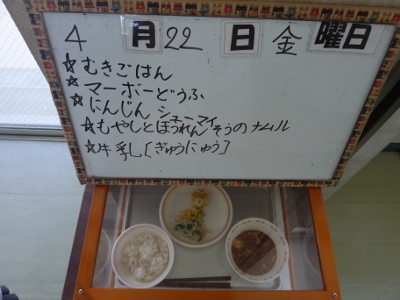 4月22日金曜日
☆むぎごはん
☆マーボーどうふ
☆にんじんシューマイ
☆もやしとほうれんそうのナムル
☆牛乳[ぎゅうにゅう]